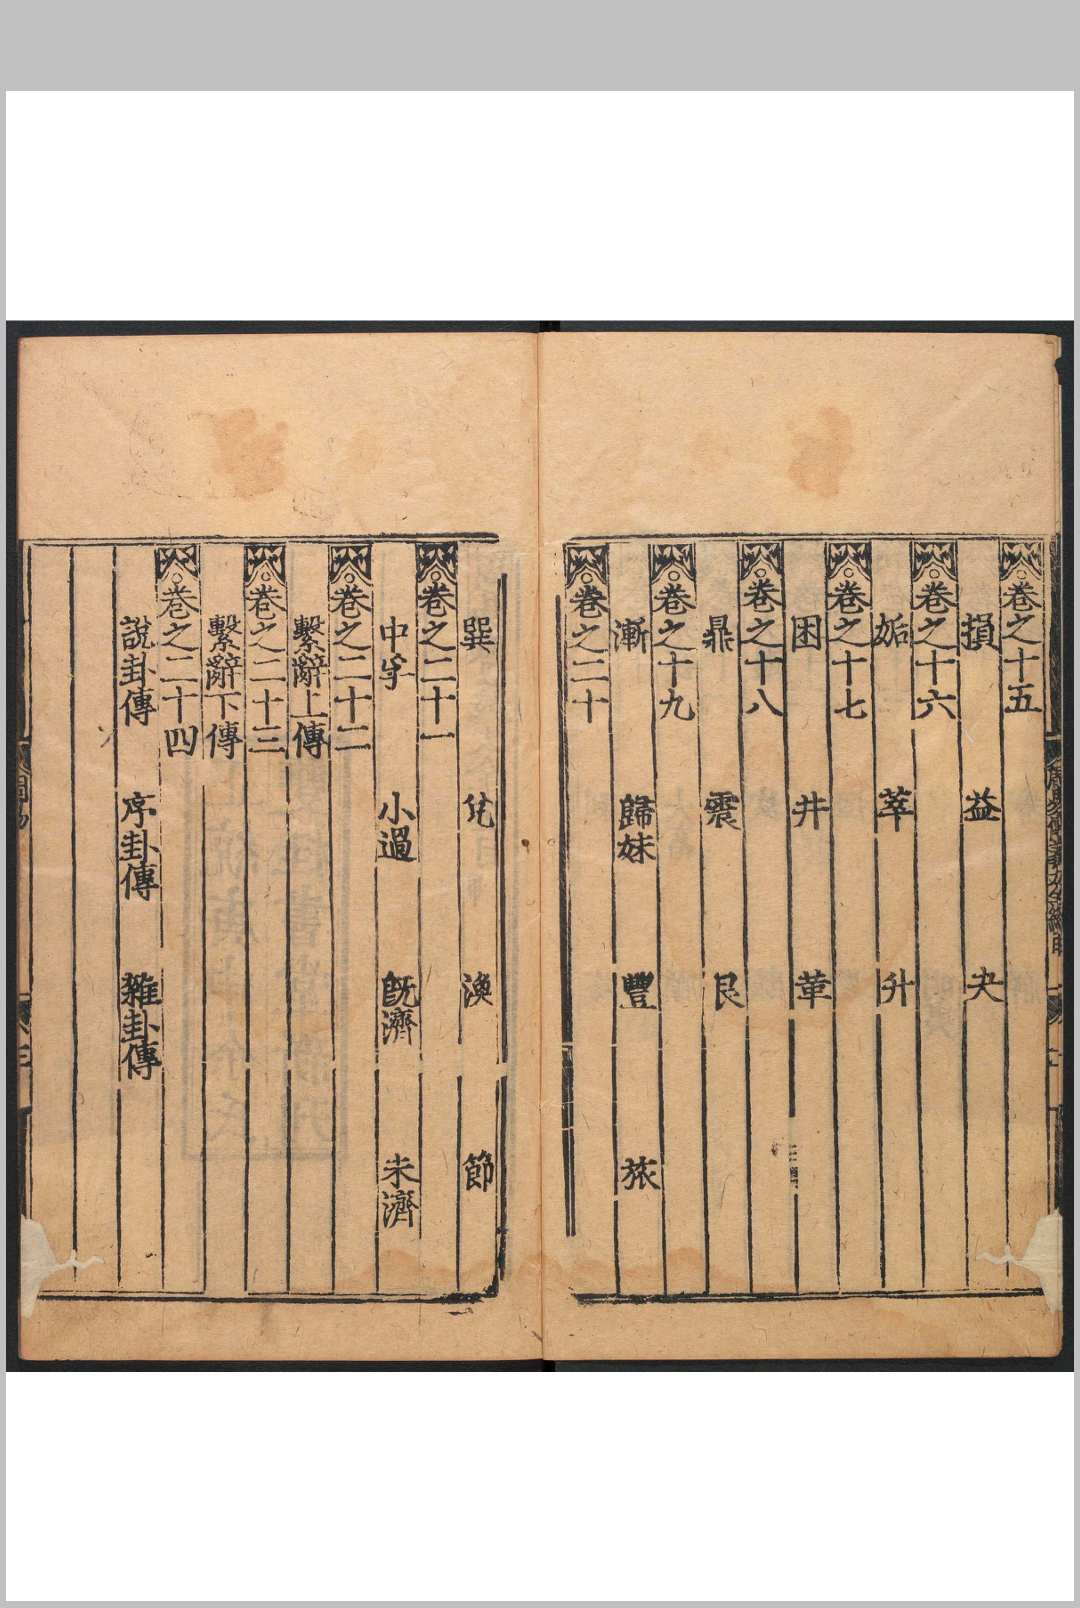 卷之十五
損 益 夬
卷之十六
姤 萃 升
卷之十七
困 井 革
卷之十八
鼎 震 艮
卷之十九
漸 歸妹 豐 旅
卷之二十
巽 兌 渙 節
卷之二十一
中孚 小過 旣濟 未濟
卷之二十二
繫辭上傳
卷之二十三
繫辭下傳
卷之二十四
說卦傳 序卦傳 雜卦傳